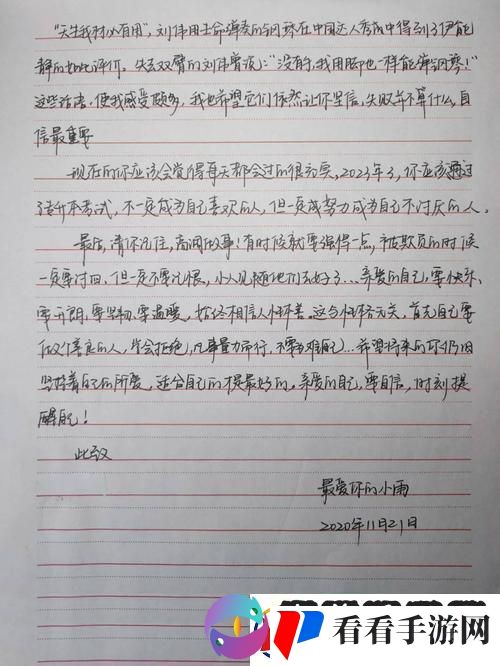 “天生我材必有用”，刘伟用生命弹奏的钢琴在中国达人秀中得到了伊能
静的如此评价。失去双臂的刘伟曾说:“没有手，我用脚也一样能弹钢琴!”
这些话语，使我感受颇多，我也希望它们依然让你坚信，失败并不算什么，自
信最重要
现在的你应该会觉得每天都会过的很充实，2023年了，你应该通过
专升本考试，不一定成为自己喜欢的人，但一定成努力成为自己不讨厌的人。
最后，请你记住，高调做事!有时候就要强得一点，被欺负的时候
一定要讨回，但一定不要记恨，小人见随他们去好了…亲爱的自己，要快乐、
要开朗、要坚韧、要温暖，始终相信人性本善。这与性格无关，首先自己要
做个善良的人，学会拒绝，凡事量力而行，不要为难自己…希望将来的你仍旧
坚持着自己的所爱，适合自己的才是最好的。亲爱的自己，要自信，时刻提
醒自己!
此致
最爱你的小雨
2020年11月21日
看看手游网